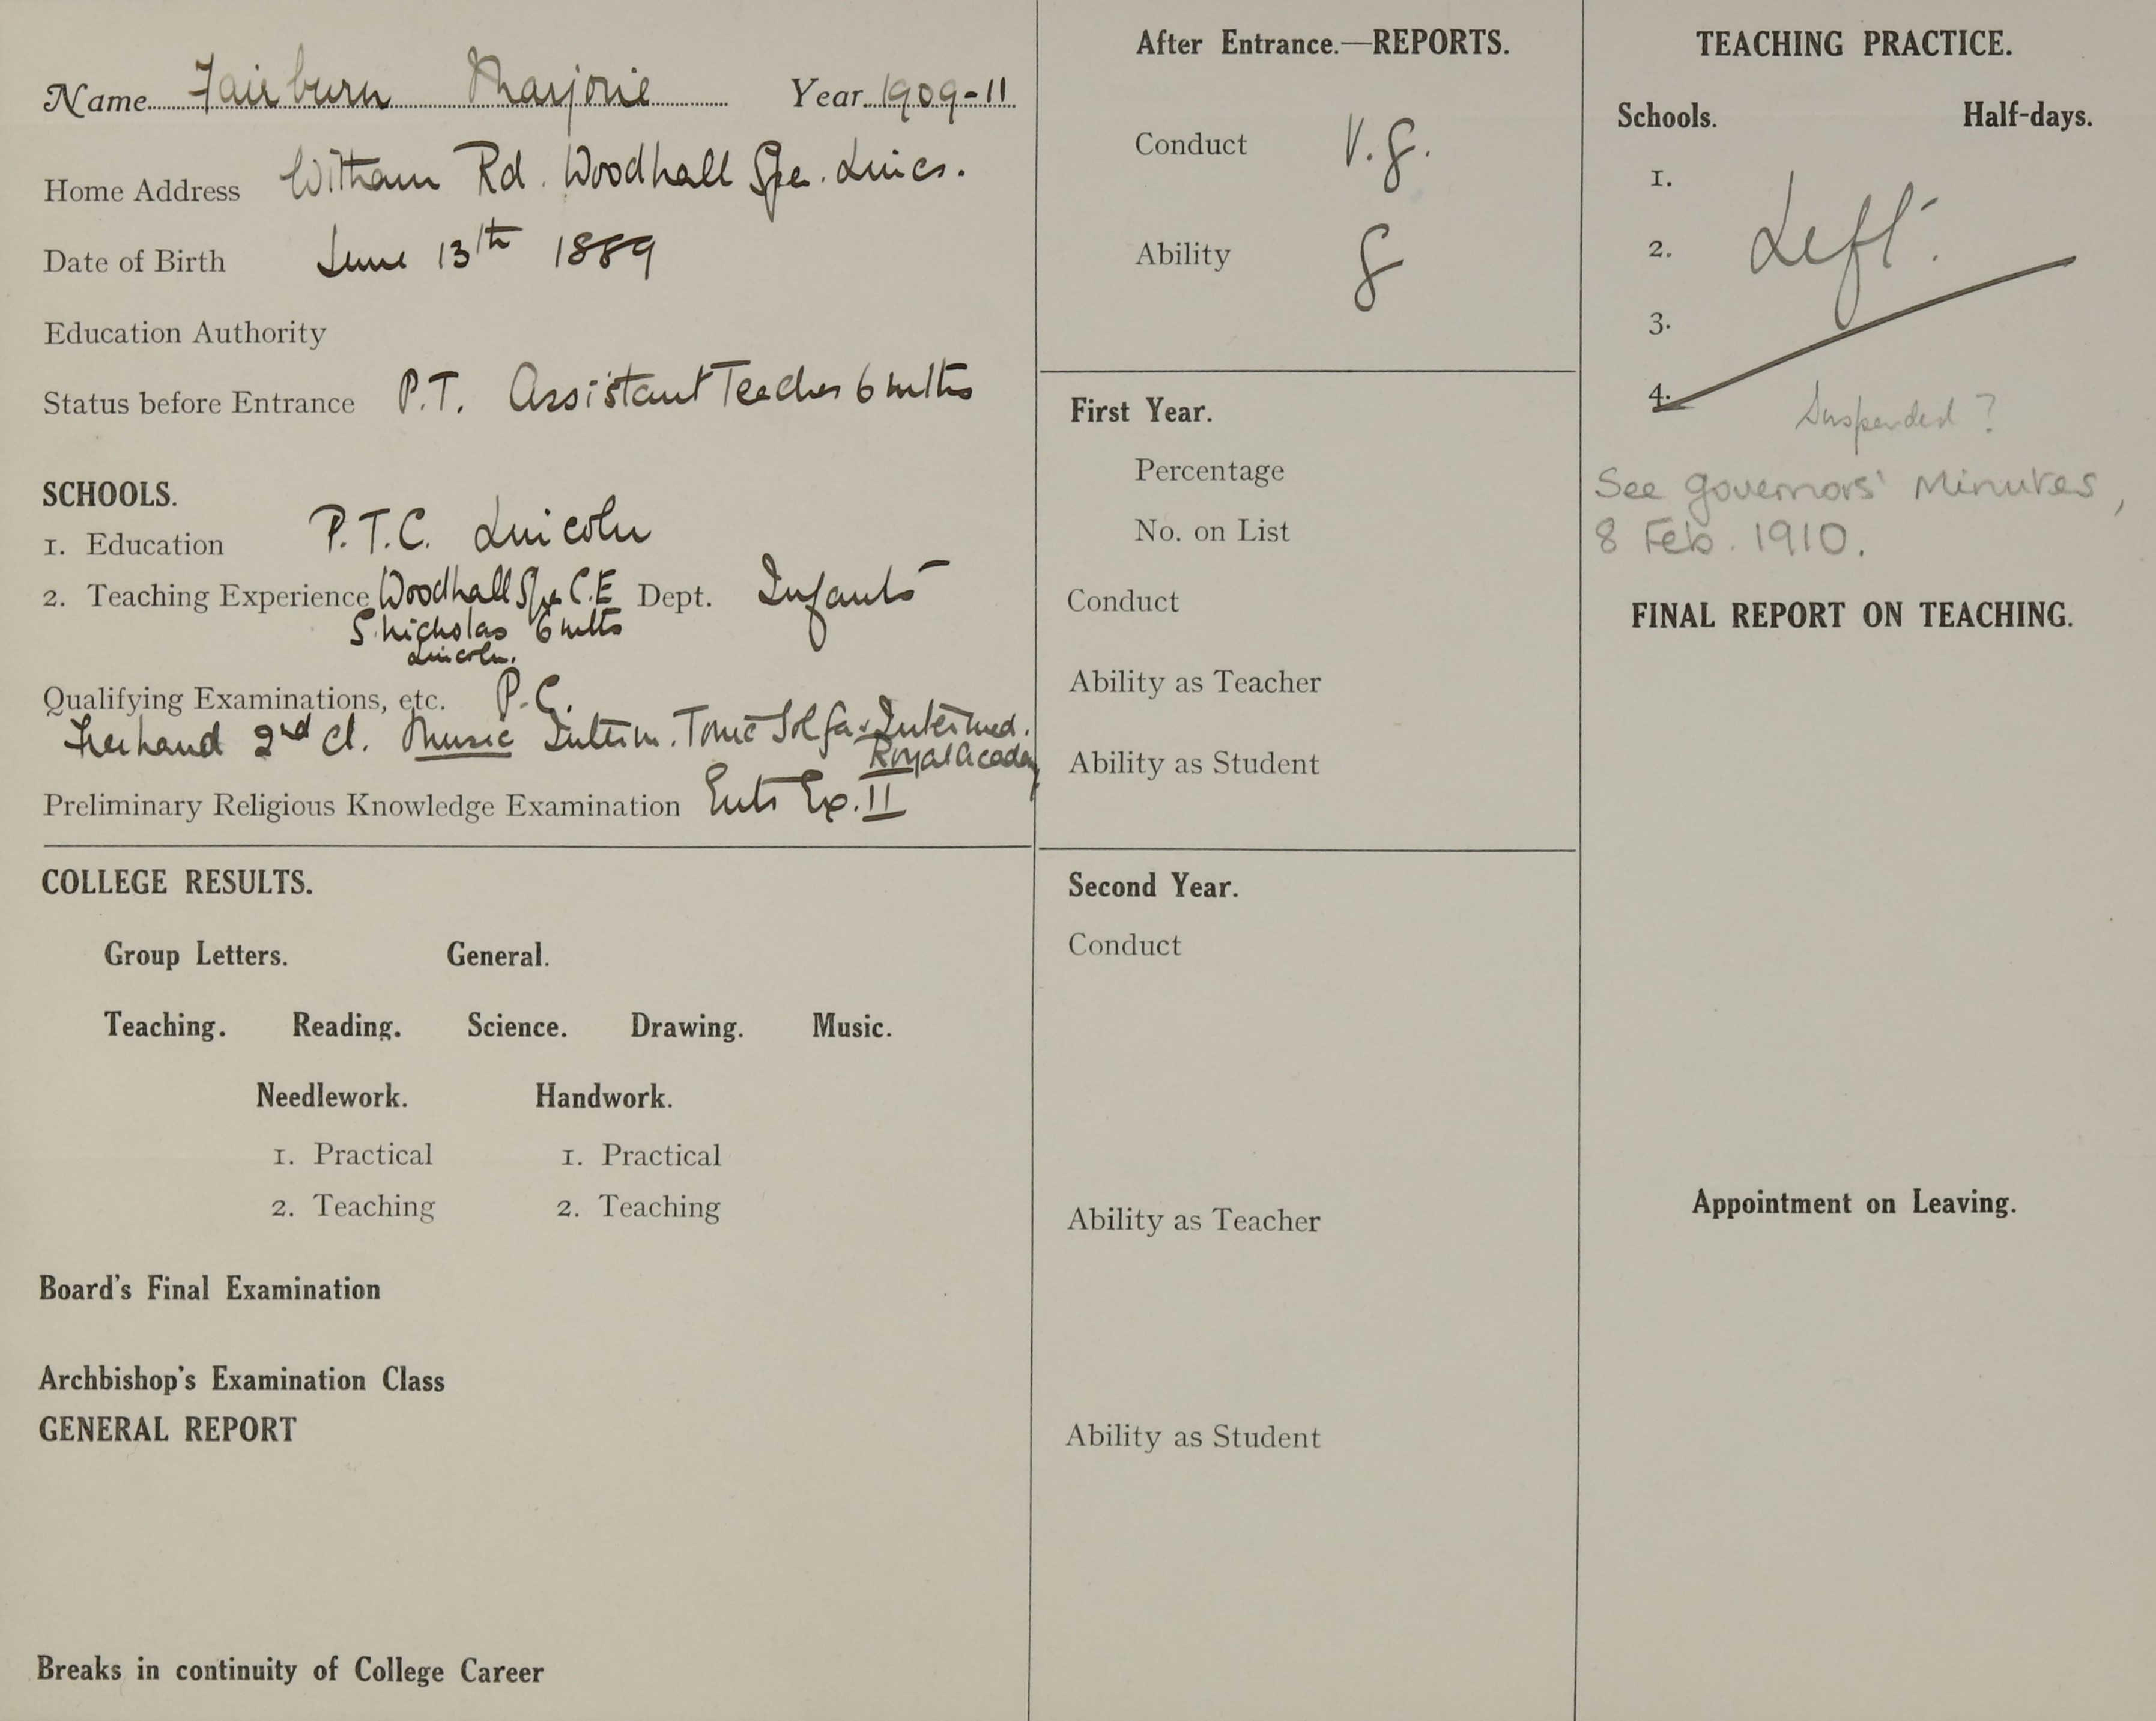 Name Fairburn Marjorie Year 1909-11
Home Address Witham Rd. Woodhall Spa. Lincs.
Date of Birth June 13th 1889
Education Authority
Status before Entrance P.T. Assistant Teacher 6 mths
SCHOOLS.
1. Education P.T.C. Lincoln
2. Teaching Experience Woodhall Spa C.E Dept. Infants
S. Nicholas 6 mths
Lincoln.
Qualifying Examinations, etc. P.C.
Freehand 2nd Cl. Music Interm. Tonic Sol fa. Intermed.
Royal Academy
Preliminary Religious Knowledge Examination Ents Ex. II
COLLEGE RESULTS.
Group Letters. General.
Teaching. Reading. Science. Drawing. Music.
Needlework. Handwork.
1. Practical 1. Practical
2. Teaching 2. Teaching
Board's Final Examination
Archbishop's Examination Class
GENERAL REPORT
Breaks in continuity of College Career
After Entrance.—REPORTS.
Conduct V.g.
Ability g
First Year.
Percentage
No. on List
Conduct
Ability as Teacher
Ability as Student
Second Year.
Conduct
Ability as Teacher
Ability as Student
TEACHING PRACTICE.
Schools. Half-days.
1.
2. Left.
3.
4.
Suspended ?
See Governors' Minutes,
8 Feb. 1910.
FINAL REPORT ON TEACHING.
Appointment on Leaving.